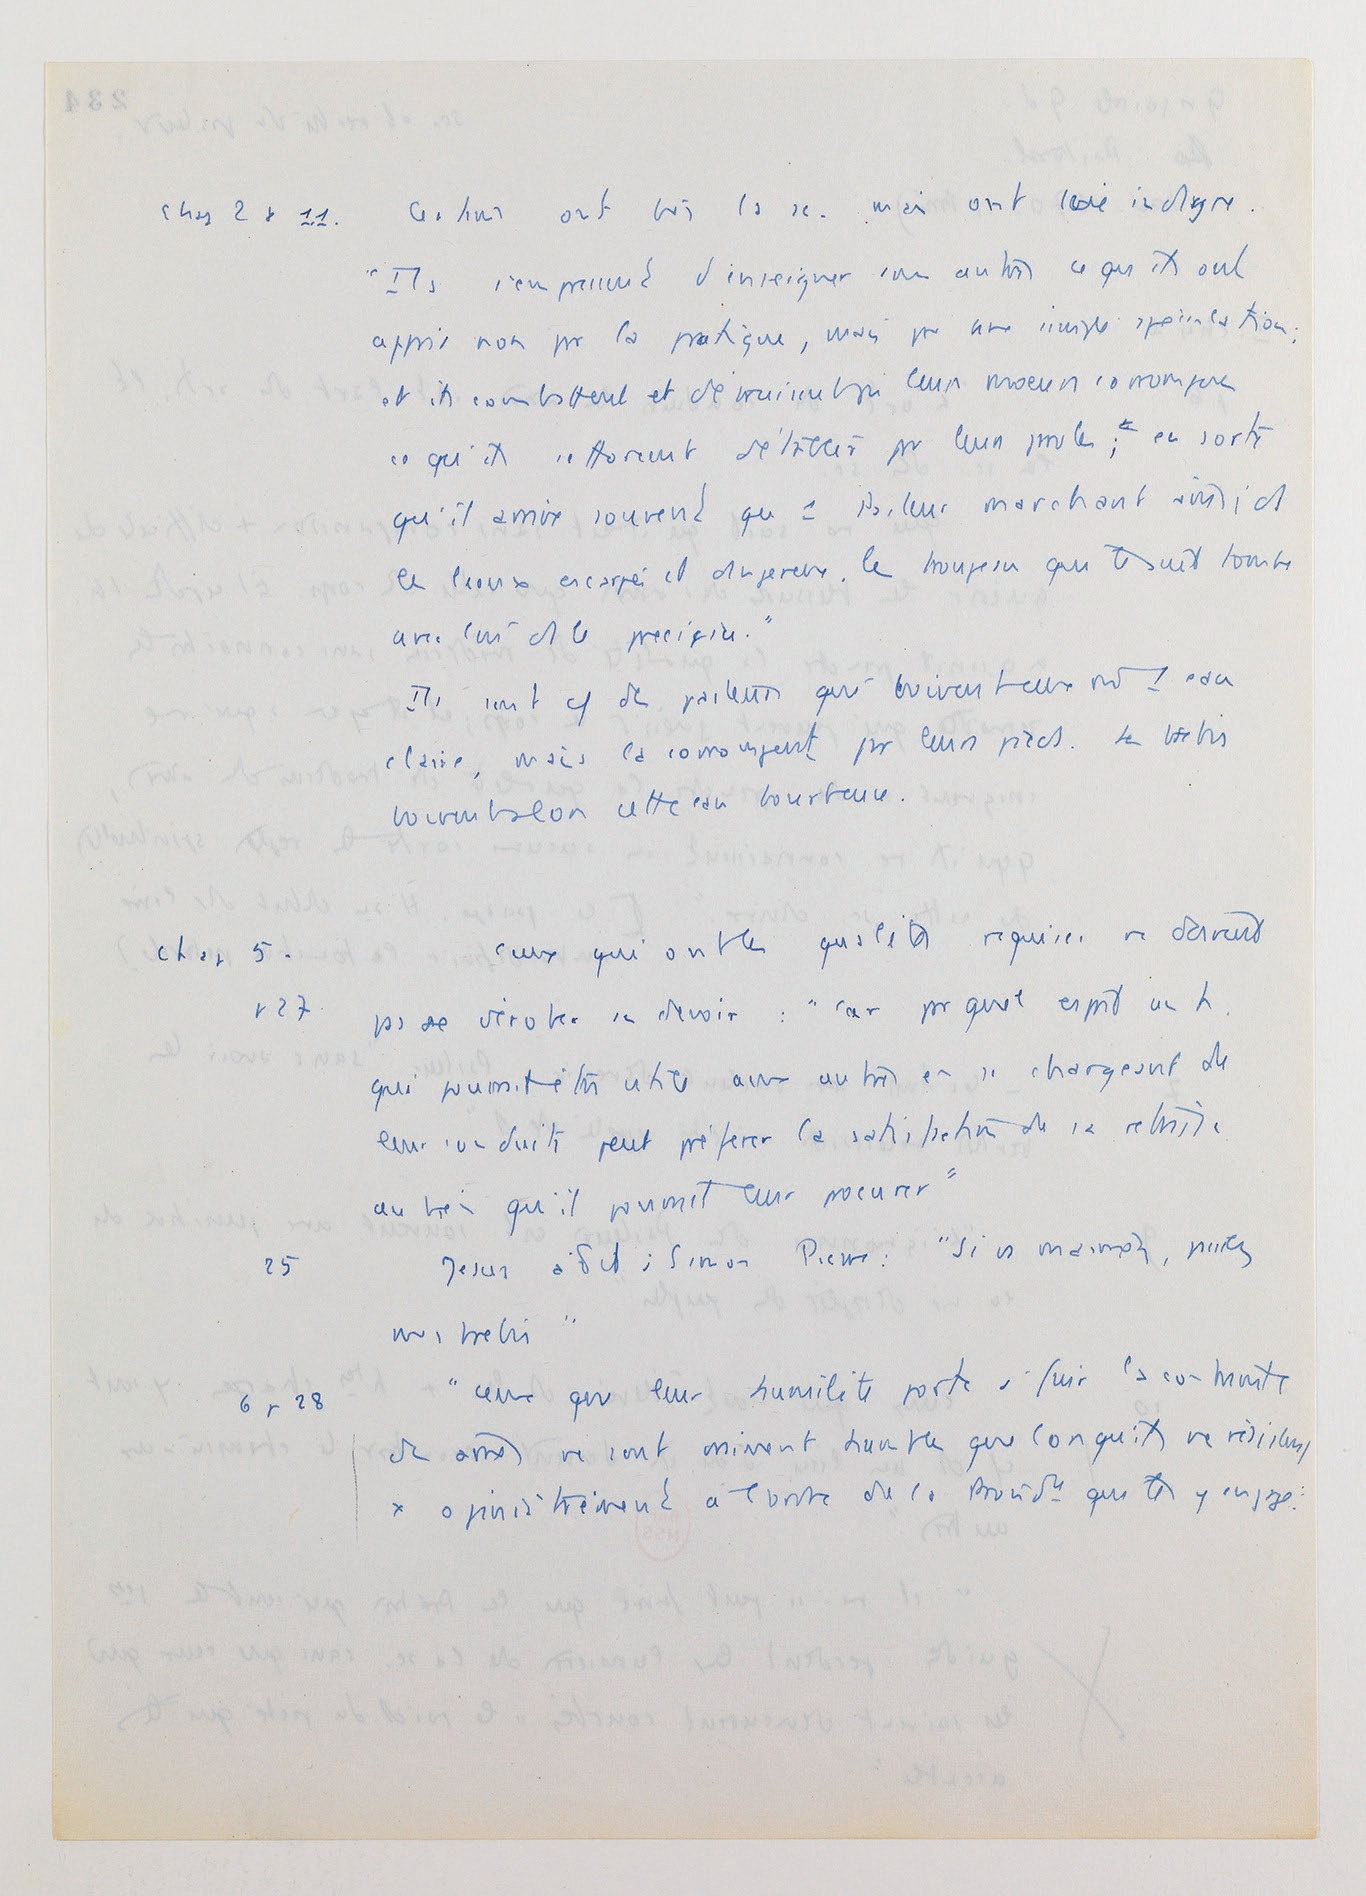 chap 2 p 11. Certains ont bien la sc. mais ont une vie indigne.
"Ils s'empressent d'enseigner aux autres ce qu'ils ont
appris non pr la pratique, mais pr une simple spéculation;
et ils combattent et détruisent par leurs moeurs corrompues
ce qu'ils s'efforcent d'établir pr leurs paroles; en sorte
qu'il arrive souvent que 1 Pasteur marchant ainsi ds
les lieux escarpés et dangereux, le troupeau qui le suit tombe
avec lui ds le précipice."
Ils sont cf des pasteurs qui boivent eux m 1 eau
claire, mais la corrompent pr leurs pieds. Les brebis
boivent alors cette eau bourbeuse.
chap 5. Ceux qui ont les qualités requises ne doivent
p 27 pas se dérober à ce devoir : "car pr quel esprit un h.
qui pourrait être utile aux autres en se chargeant de
leur conduite peut préférer la satisfaction de sa retraite
au bien qu'il pourrait leur procurer"
25 Jesus a dit à Simon Pierre: "Si vs m'aimez, paissez
mes brebis"
6 p 28 "ceux que leur humilité porte à fuir la conduite
des âmes ne sont vraiment humbles que lorsqu'ils ne résistent
x opiniâtrement à l'ordre de la Providce qui les y engage: